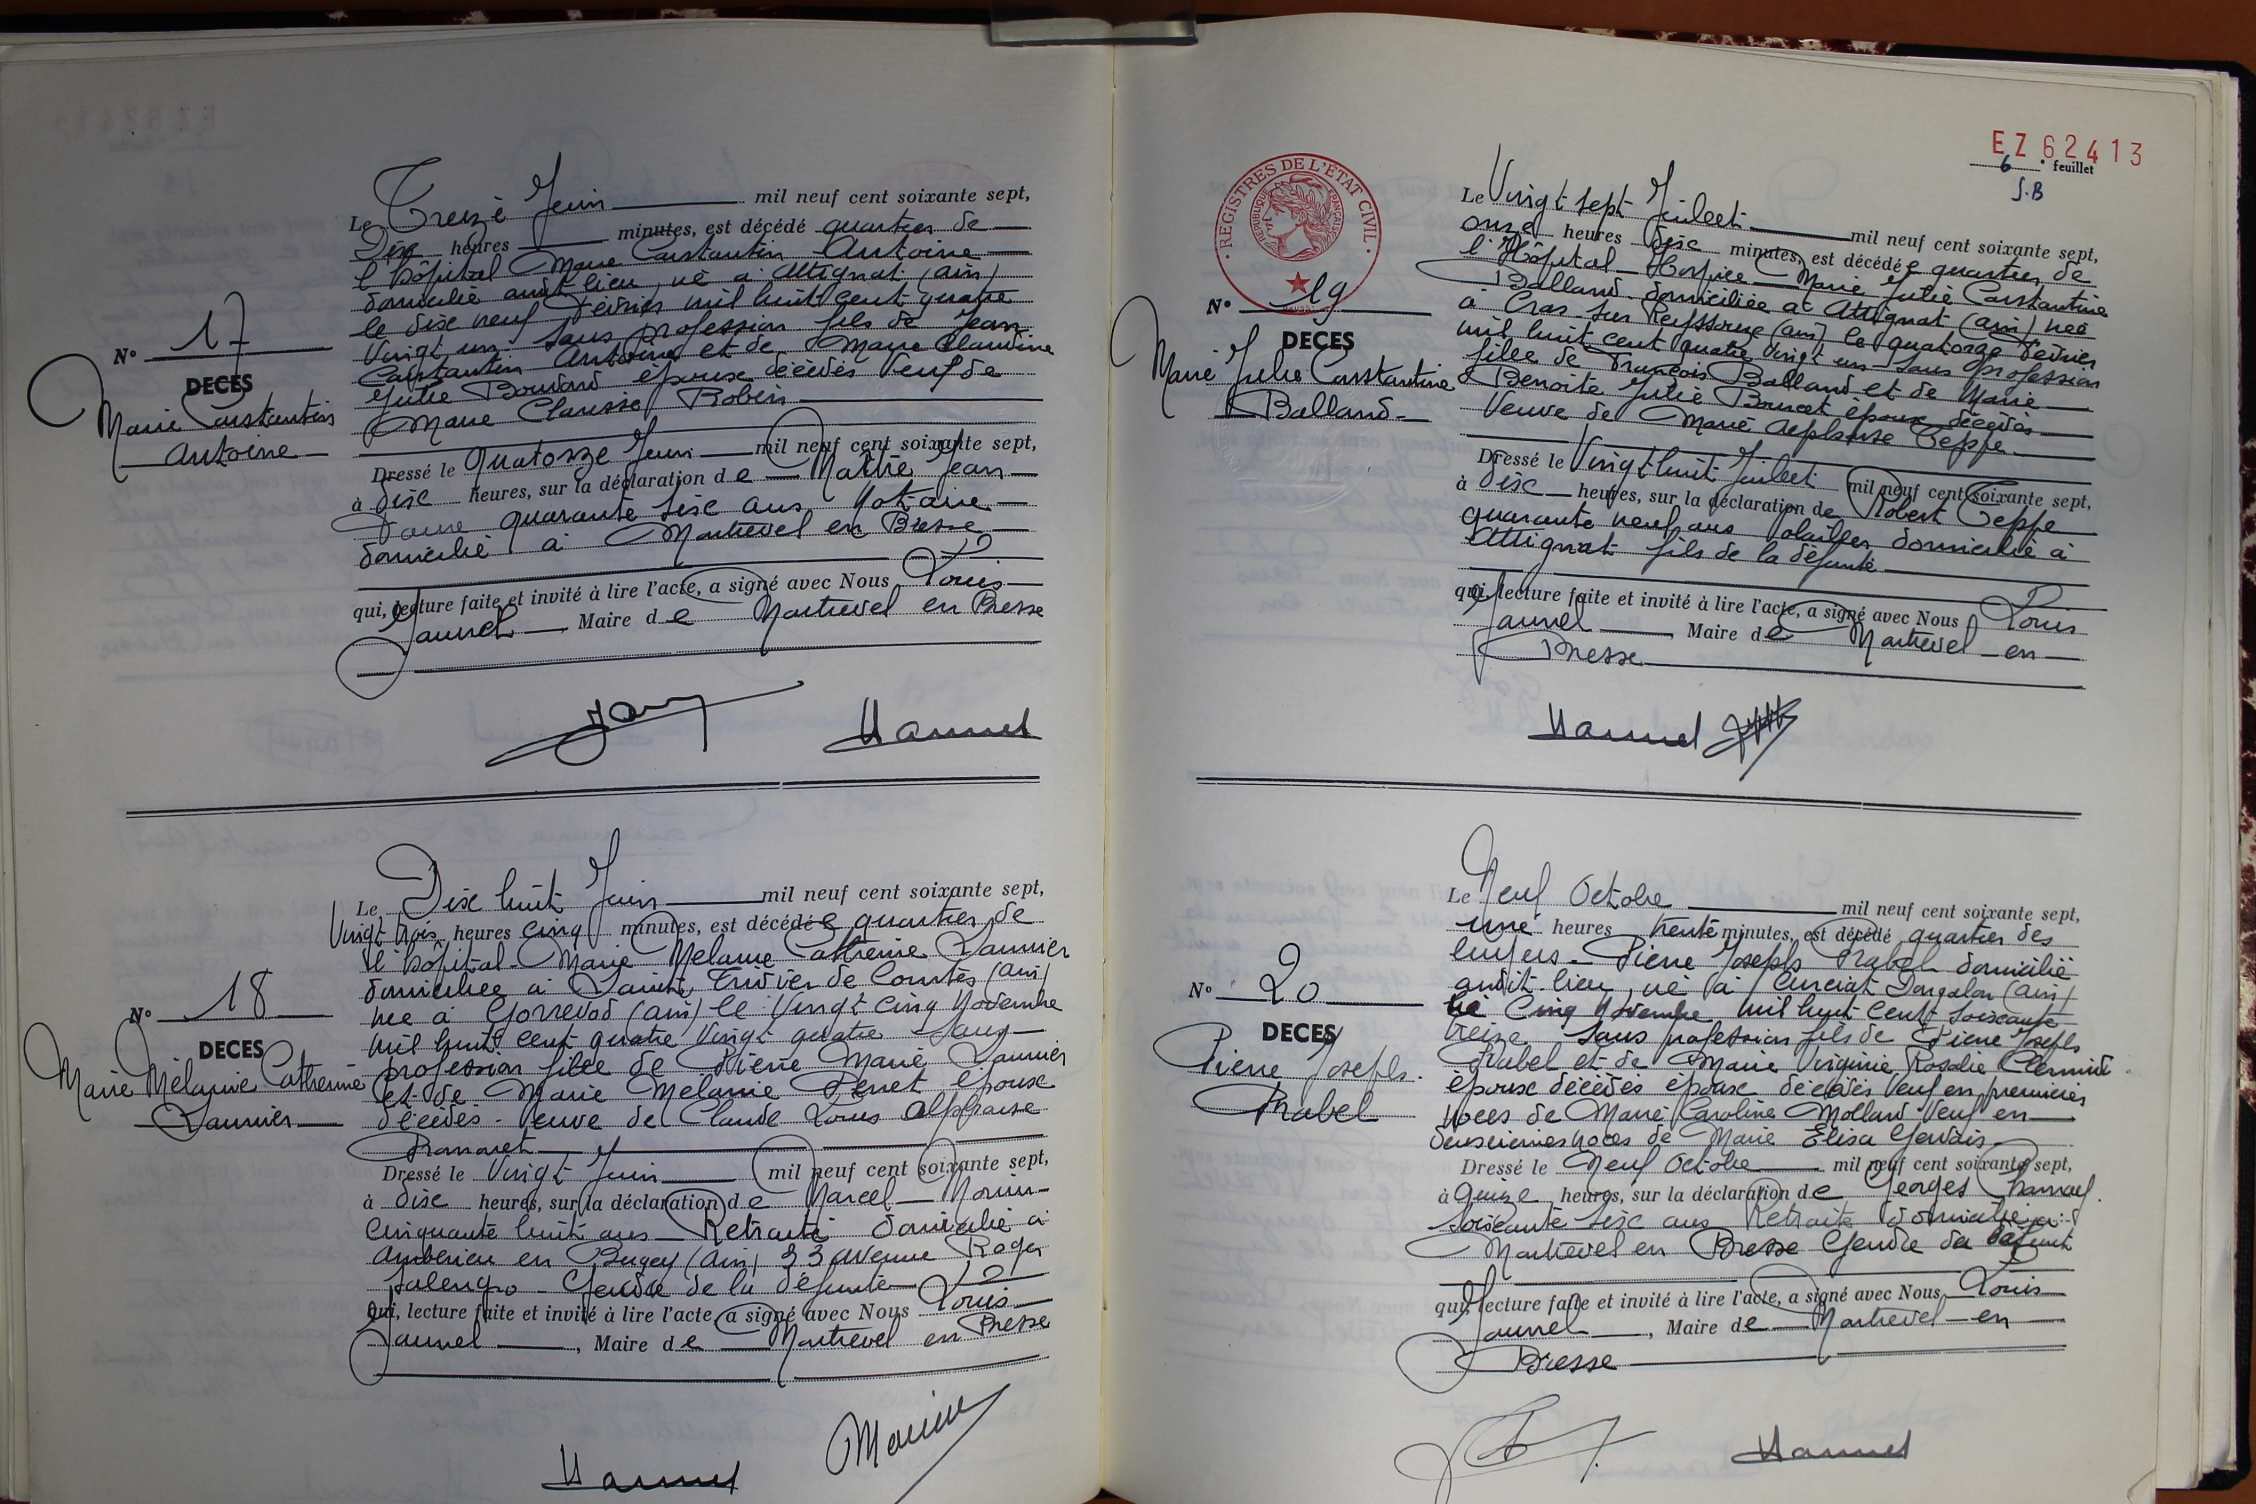 Le Treize Juin mil neuf cent soixante sept,
Dix heures minutes, est décédé quartier de
l'hôpital Marie Constantin Antoine
domicilié audit lieu, né à Attignat (ain)
le dix neuf Février mil huit cent quatre
Vingt un sans profession fils de Jean
Constantin Antoine et de Marie Claudine
Julie Bouvard époux décédés Veuf de
Marie Clarisse Robin
N° 17
DECES
Marie Constantin
Antoine
Dressé le Quatorze Juin mil neuf cent soixante sept,
à dix heures, sur la déclaration de Jean
quarante six ans Notaire
domicilié à Montrevel en Bresse
qui, lecture faite et invité à lire l'acte, a signé avec Nous Louis
Jaunel, Maire de Montrevel en Bresse
Le Dix huit Juin mil neuf cent soixante sept,
Vingt trois heures cinq minutes, est décédée quartier de
l'hôpital Marie Mélanie Catherine
domiciliée à Saint Trivier de Courtes (ain)
née à Gorrevod (ain) le Vingt cinq Novembre
mil huit cent quatre Vingt quatre sans
profession fille de Pierre Marie
et de Marie Mélanie Penet époux
décédés - Veuve de Claude Louis Alphonse
N° 18
DECES
Marie Mélanie Catherine
Dressé le Vingt Juin mil neuf cent soixante sept,
à dix heures, sur la déclaration de Marcel Morin
cinquante huit ans Retraité domicilié à
Ambérieu en Bugey (ain) 33 avenue Roger
Salengro - Gendre de la défunte
qui, lecture faite et invité à lire l'acte, a signé avec Nous Louis
Jaunel, Maire de Montrevel en Bresse
EZ 62413
6 e feuillet
J.B
REGISTRES DE L'ETAT CIVIL
REPUBLIQUE FRANÇAISE
Le Vingt sept Juillet mil neuf cent soixante sept,
onze heures dix minutes, est décédée quartier de
l'Hôpital - Hospice - Marie Julie Constantine
Balland domiciliée à Attignat (ain) née
à Cras sur Reyssouze (ain) le quatorze Février
mil huit cent quatre Vingt un sans profession
fille de François Balland et de Marie
Benoite Julie Boncet époux décédés
Veuve de Marie Alphonse Teppe
N° 19
DECES
Marie Julie Constantine
Balland
Dressé le Vingt huit Juillet mil neuf cent soixante sept,
à dix heures, sur la déclaration de Robert Teppe
quarante neuf ans Volailler domicilié à
Attignat fils de la défunte
qui, lecture faite et invité à lire l'acte, a signé avec Nous Louis
Jaunel Maire de Montrevel en
Bresse
Le Neuf Octobre mil neuf cent soixante sept,
une heures trente minutes, est décédé quartier des
Pierre Joseph Rabel domicilié
audit lieu, né à Curciat Dongalon (ain)
le Cinq Novembre mil huit cent soixante
treize sans profession fils de Pierre Joseph
Rabel et de Marie Virginie Rosalie
époux décédés époux décédés Veuf en premières
noces de Marie Caroline Mollard Veuf en
deuxièmes noces de Marie Elisa Gervais
N° 20
DECES
Pierre Joseph
Rabel
Dressé le Neuf Octobre mil neuf cent soixante sept,
à quinze heures, sur la déclaration de Georges
soixante six ans Retraité domicilié à
Montrevel en Bresse Gendre du défunt
qui, lecture faite et invité à lire l'acte, a signé avec Nous Louis
Jaunel, Maire de Montrevel en
Bresse